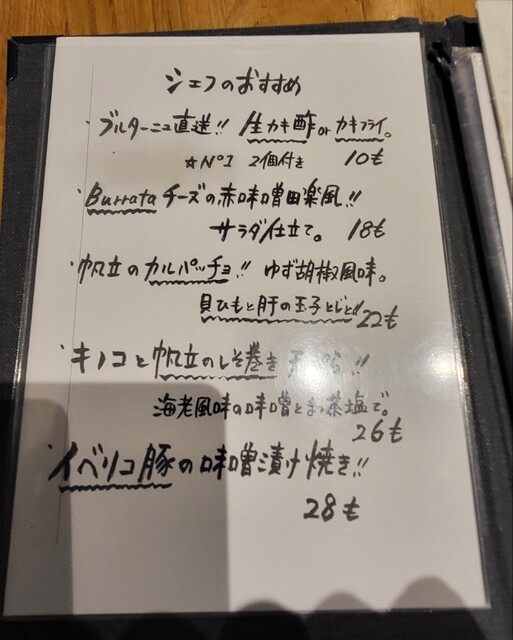 シェフのおすすめ
・ブルターニュ直送!! 生カキ酢 or カキフライ。
☆No1 2個付き 10€
・Burrataチーズの赤味噌田楽風!!
サラダ仕立て。 18€
・帆立のカルパッチョ!! ゆず胡椒風味。
貝ひもと肝の玉子とじと!! 22€
・キノコと帆立のしそ巻き !!
海老風味の味噌とまっ茶塩で。
26€
・イベリコ豚の味噌漬け焼き!!
28€